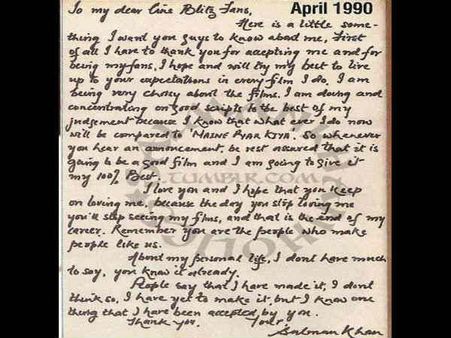 April 1990
To my dear Cine Blitz Fans,
Here is a little some-
thing I want you guys to know about me, First
of all I have to thank you for accepting me and for
being my fans, I hope and will try my best to live
up to your expectations in every film I do, I am
being very choisy about the films. I am doing and
concentrating on good scripts to the best of my
judgement because I know that what ever I do now
will be compared to 'MAINE PYAR KIYA'. So whenever
you hear an announcement, be rest assured that it is
going to be a good film and I am going to give it
my 100% Best.
I love you and I hope that you keep
on loving me, because the day you stop loving me
you'll stop seeing my films, and that is the end of my
career. Remember you are the people who make
people like us.
About my personal life, I dont have much
to say, you know it already.
People say that I have made it, I dont
think so, I have yet to make it, but I know one
thing that I have been accepted by you.
Thank you. Your
Salman Khan
TUMBLR.COM